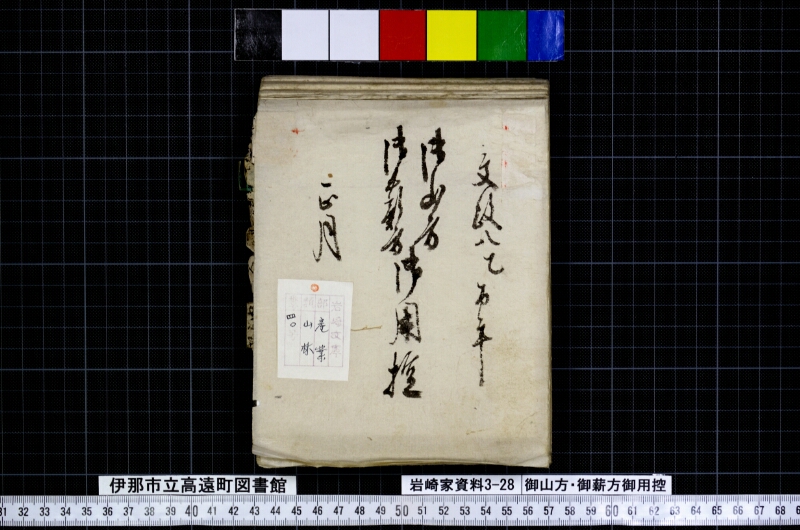 文政八乙酉年
御山方
御薪方
御用控
正月
岩崎文庫
部 産業
項 山林
四〇
伊那市立高遠町図書館
岩崎家資料3-28 御山方・御薪方御用控
31 32 33 34 35 36 37 38 39 40 41 42 43 44 45 46 47 48 49 50 51 52 53 54 55 56 57 58 59 60 61 62 63 64 65 66 67 68